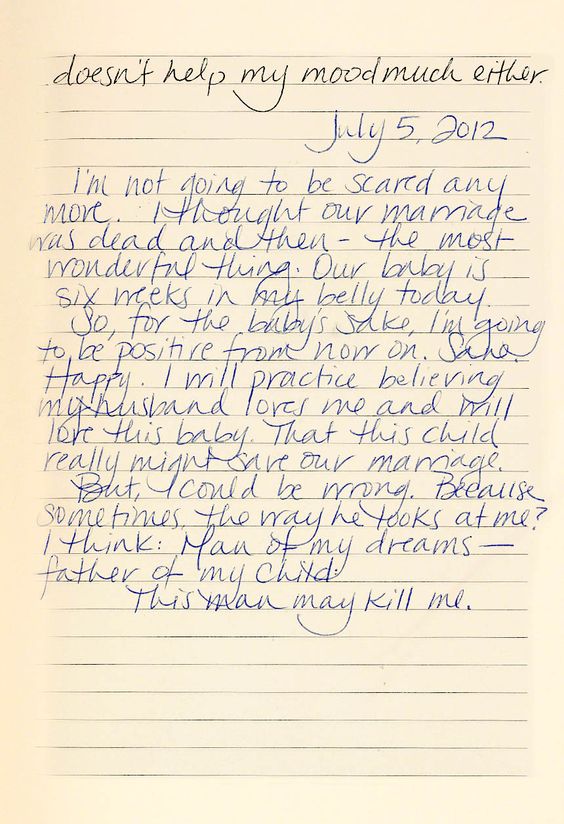 doesn't help my mood much either.
July 5, 2012
I'm not going to be scared any
more. I thought our marriage
was dead and then – the most
wonderful thing. Our baby is
six weeks in my belly today.
So, for the baby's sake, I'm going
to be positive from now on. Sane.
Happy. I will practice believing
my husband loves me and will
love this baby. That this child
really might save our marriage.
But, I could be wrong. Because
sometimes, the way he looks at me?
I think: Man of my dreams —
father of my child
This man may kill me.